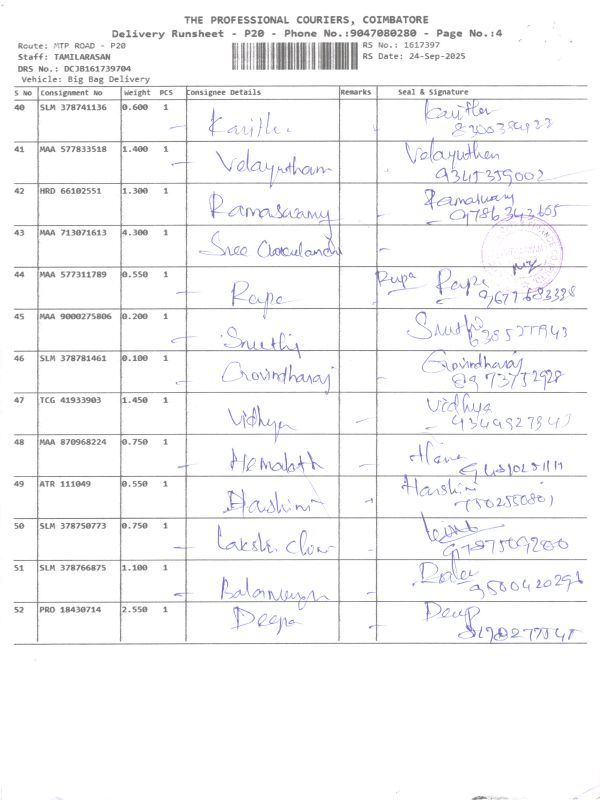 THE PROFESSIONAL COURIERS, COIMBATORE
Delivery Runsheet - P20 - Phone No.:9047080280 - Page No.:4
Route: MTP ROAD - P20 RS No.: 1617397
Staff: TAMILARASAN RS Date: 24-Sep-2025
DRS No.: DCJB161739704
Vehicle: Big Bag Delivery
S No Consignment No Weight PCS Consignee Details Remarks Seal & Signature
40 SLM 378741136 0.600 1
41 MAA 577833518 1.400 1 Velayutham Velayuthan
9345359002
42 HRD 66102551 1.300 1 Ramaswamy Ramaswamy
9786343655
43 MAA 713071613 4.300 1 Sree
44 MAA 577311789 0.550 1 Rupa Rupa Rupa
9677683398
45 MAA 9000275806 0.200 1 Sruthi Sruthi
46 SLM 378781461 0.100 1 Govindharaj Govindharaj
8973752928
47 TCG 41933903 1.450 1 Vidhya Vidhya
48 MAA 870968224 0.750 1 Hemalath
49 ATR 111049 0.550 1 Harshini Harshini
50 SLM 378750773 0.750 1 Lakshi
9787509200
51 SLM 378766875 1.100 1
9500420296
52 PRO 18430714 2.550 1 Deepa Deep